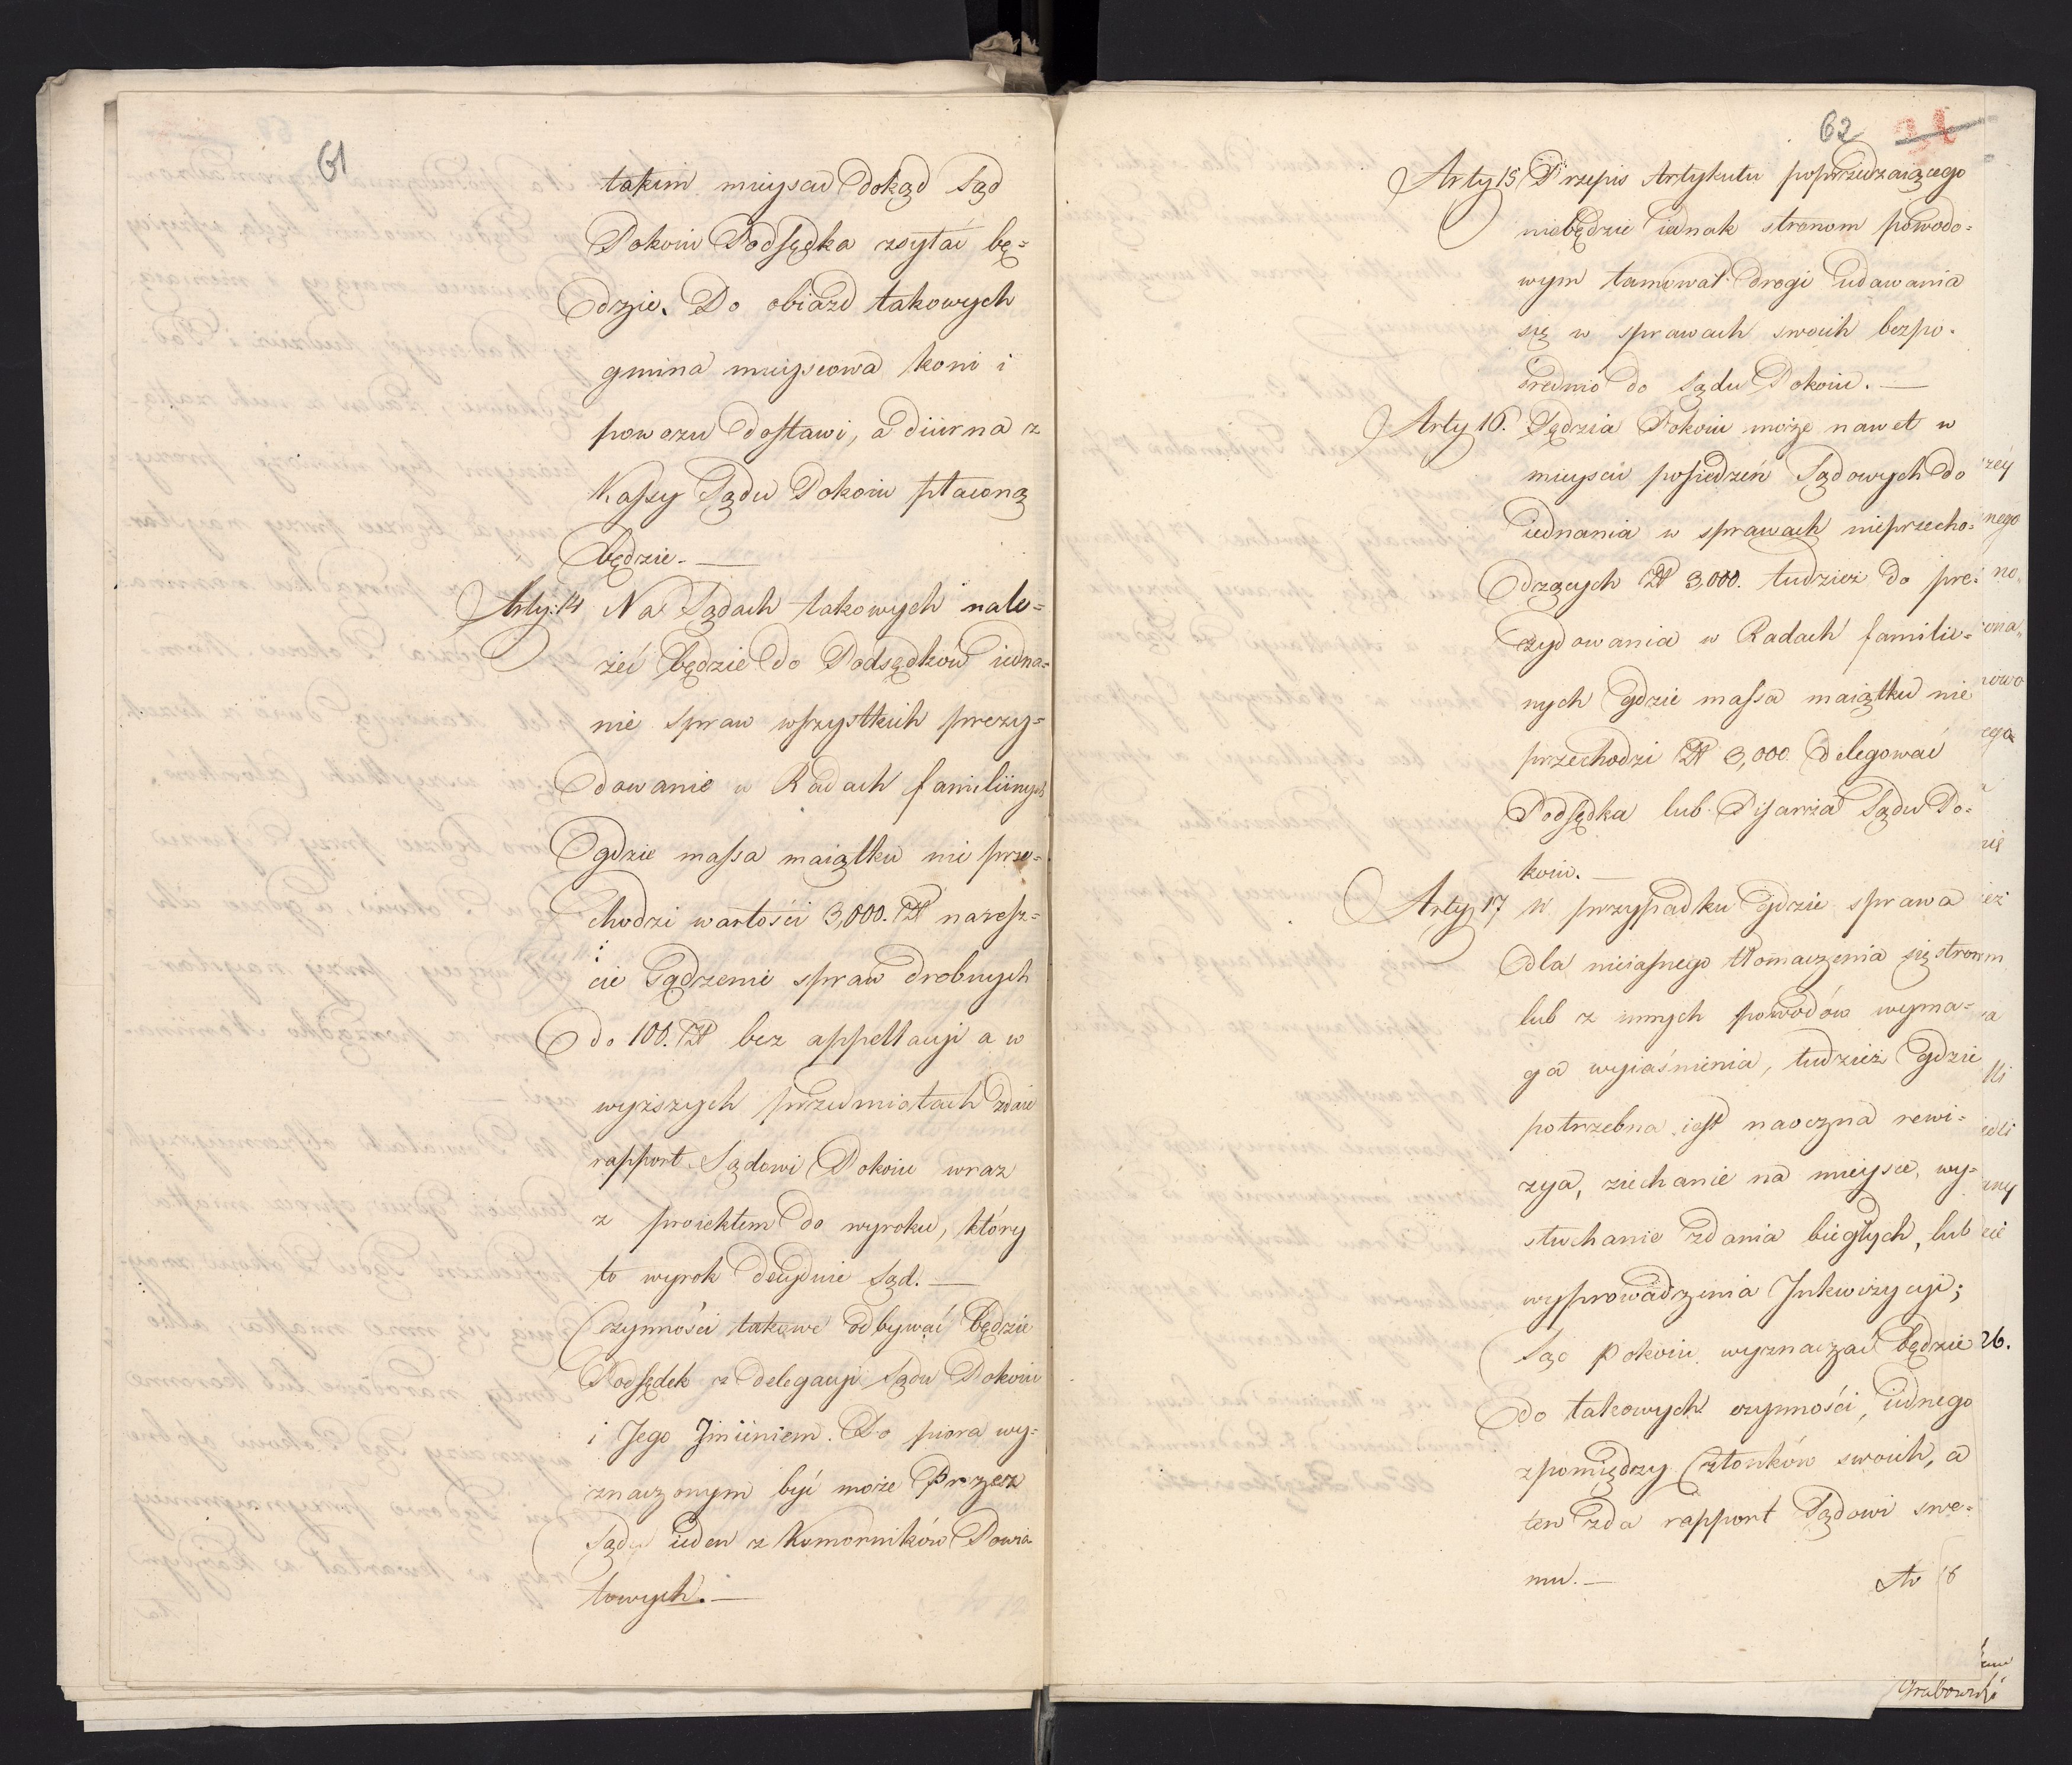 61
takim mieyscu dokąd Sąd
Pokoiu Podsędka zsyłać bę-
dzie. Do obiazd takowych
gmina mieyscowa koni i
powozu dostawi, a diurna z
Kassy Sądu Pokoiu płaconą
będzie. —
Arty: 14 Na Sądach takowych nale-
żeć będzie do Podsędków iedna-
nie spraw wszystkich prezy-
dowanie w Radach familiinych
gdzie massa maiątku nie prze-
chodzi wartości 3,000. Zł naresz-
cie Sądzenie spraw drobnych
do 100. Zł bez appellacyi a w
wyższych przedmiotach zdaie
rapport Sądowi Pokoiu wraz
z proiektem do wyroku, który
to wyrok decyduie Sąd. —
Czynności takowe odbywać będzie
Podsędek z delegacyi Sądu Pokoiu
i Jego Jmieniem. Do piora wy-
znaczonym być może przez
Sąd ieden z Komorników Powia-
towych. —
62
Arty 15 Przepis Artykułu poprzedzaiącego
niebędzie iednak stronom powodo-
wym tamował drogi udawania
się w sprawach swoich bezpo-
średnio do Sądu Pokoiu. —
Arty 16. Sędzia Pokoiu może nawet w
mieyscu posiedzeń Sądowych do
iednania w sprawach nieprzecho-
dzących Zł 3,000. tudzież do pre-
zydowania w Radach familii-
nych gdzie massa maiątku nie
przechodzi Zł 3,000. delegować
Podsędka lub Pisarza Sądu Po-
koiu. —
Arty 17 W przypadku gdzie sprawa
dla nieiasnego tłomaczenia się stron
lub z innych powodów wyma-
ga wyiaśnienia, tudzież gdzie
potrzebna iest naoczna rewi-
zya, ziechanie na mieysce, wy-
słuchanie zdania biegłych, lub
wyprowadzenia Inkwizycyi;
Sąd Pokoiu wyznaczać będzie
do takowych czynności, iednego
zpomiędzy Członków swoich, a
ten zda rapport Sądowi swe-
mu. —
26.
Grabowski